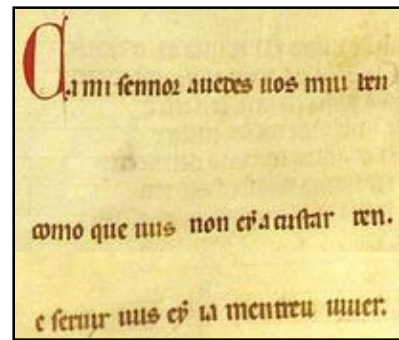 Ca mi sennor auedes uos mui ben
como que uus non ey a custar ren.
e seruir uus ey ia mentreu uiuer.